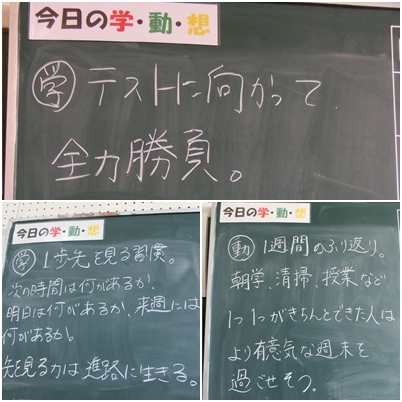 今日の学・動・想
学 テストに向かって
全力勝負。
今日の学・動・想
学 1歩先を見る習慣。
次の時間は何があるか、
明日は何があるか、来週には
何があるか。
先を見る力は進路に生きる。
今日の学・動・想
動 1週間のふり返り。
朝学、清掃、授業など
1つ1つがきちんとできた人は
より有意気な週末を
過ごせそう。